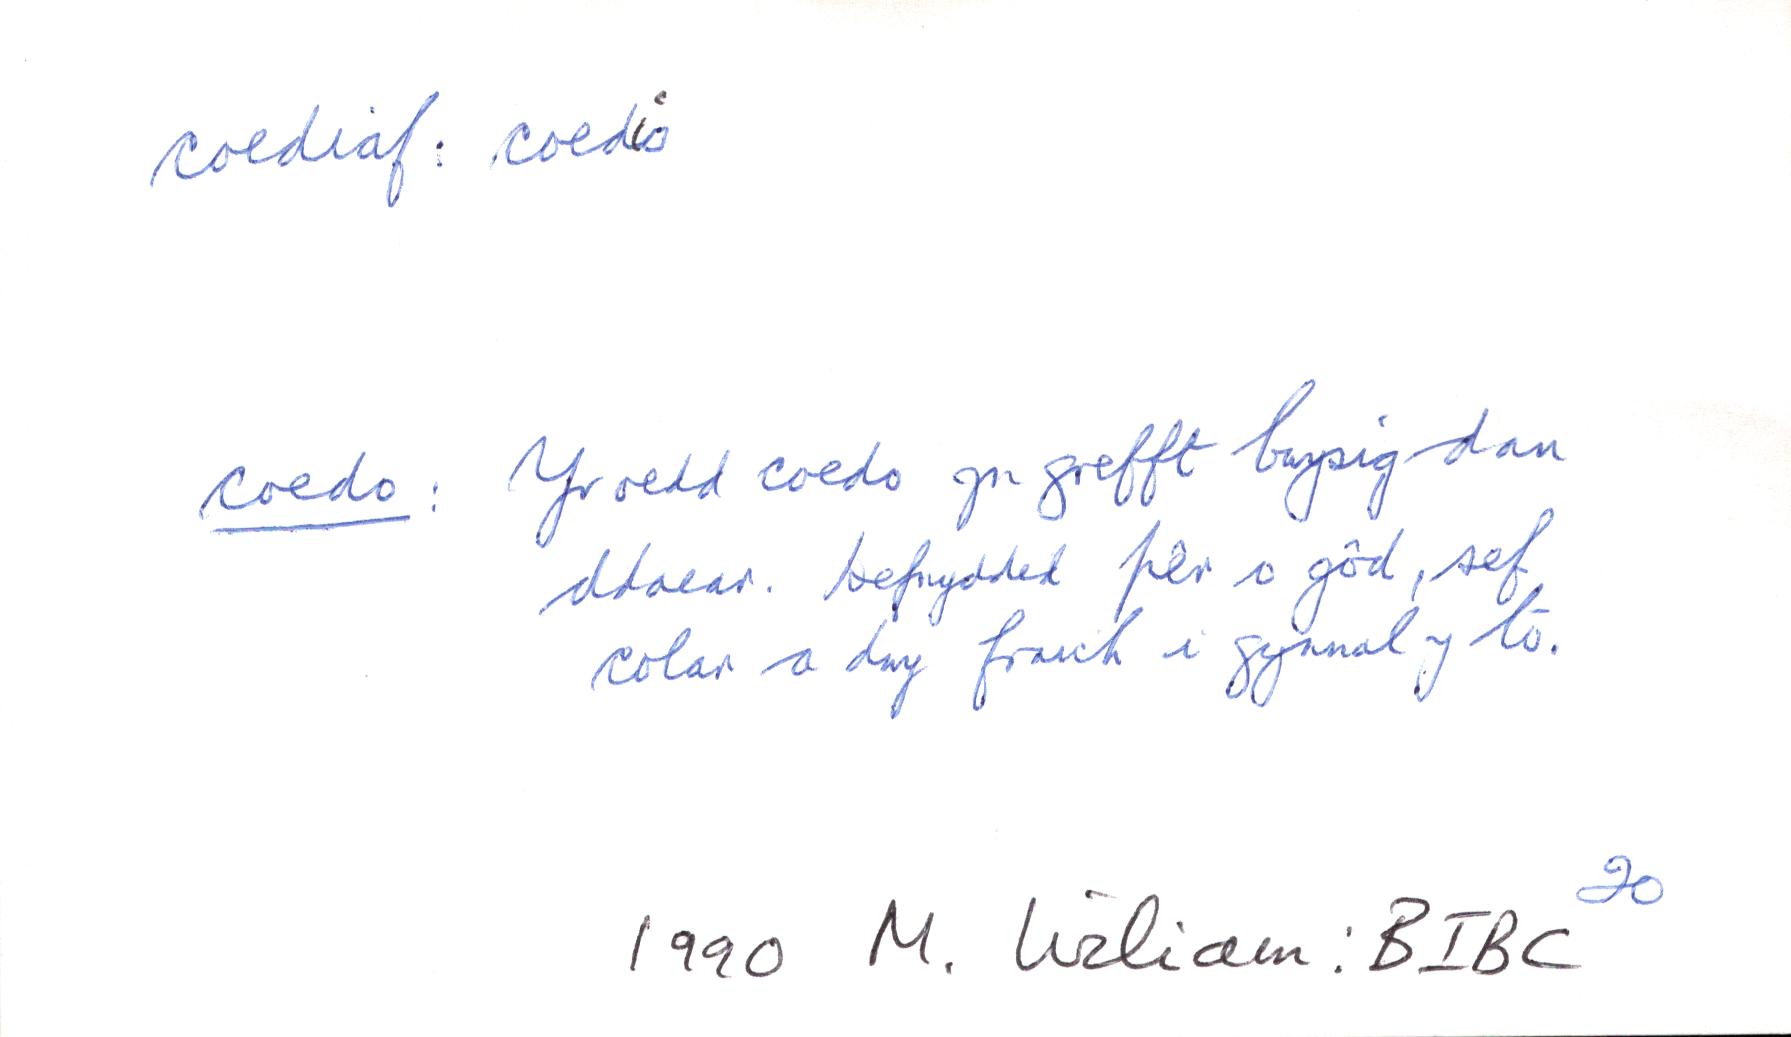 coediaf: coedio
coedo: Yr oedd coedo yn grefft bwysig dan
ddaear. Defnyddid pêr o gôd, sef
colar a dwy fraich i gynnal y to.
20
1990 M. Wiliam: BIBC